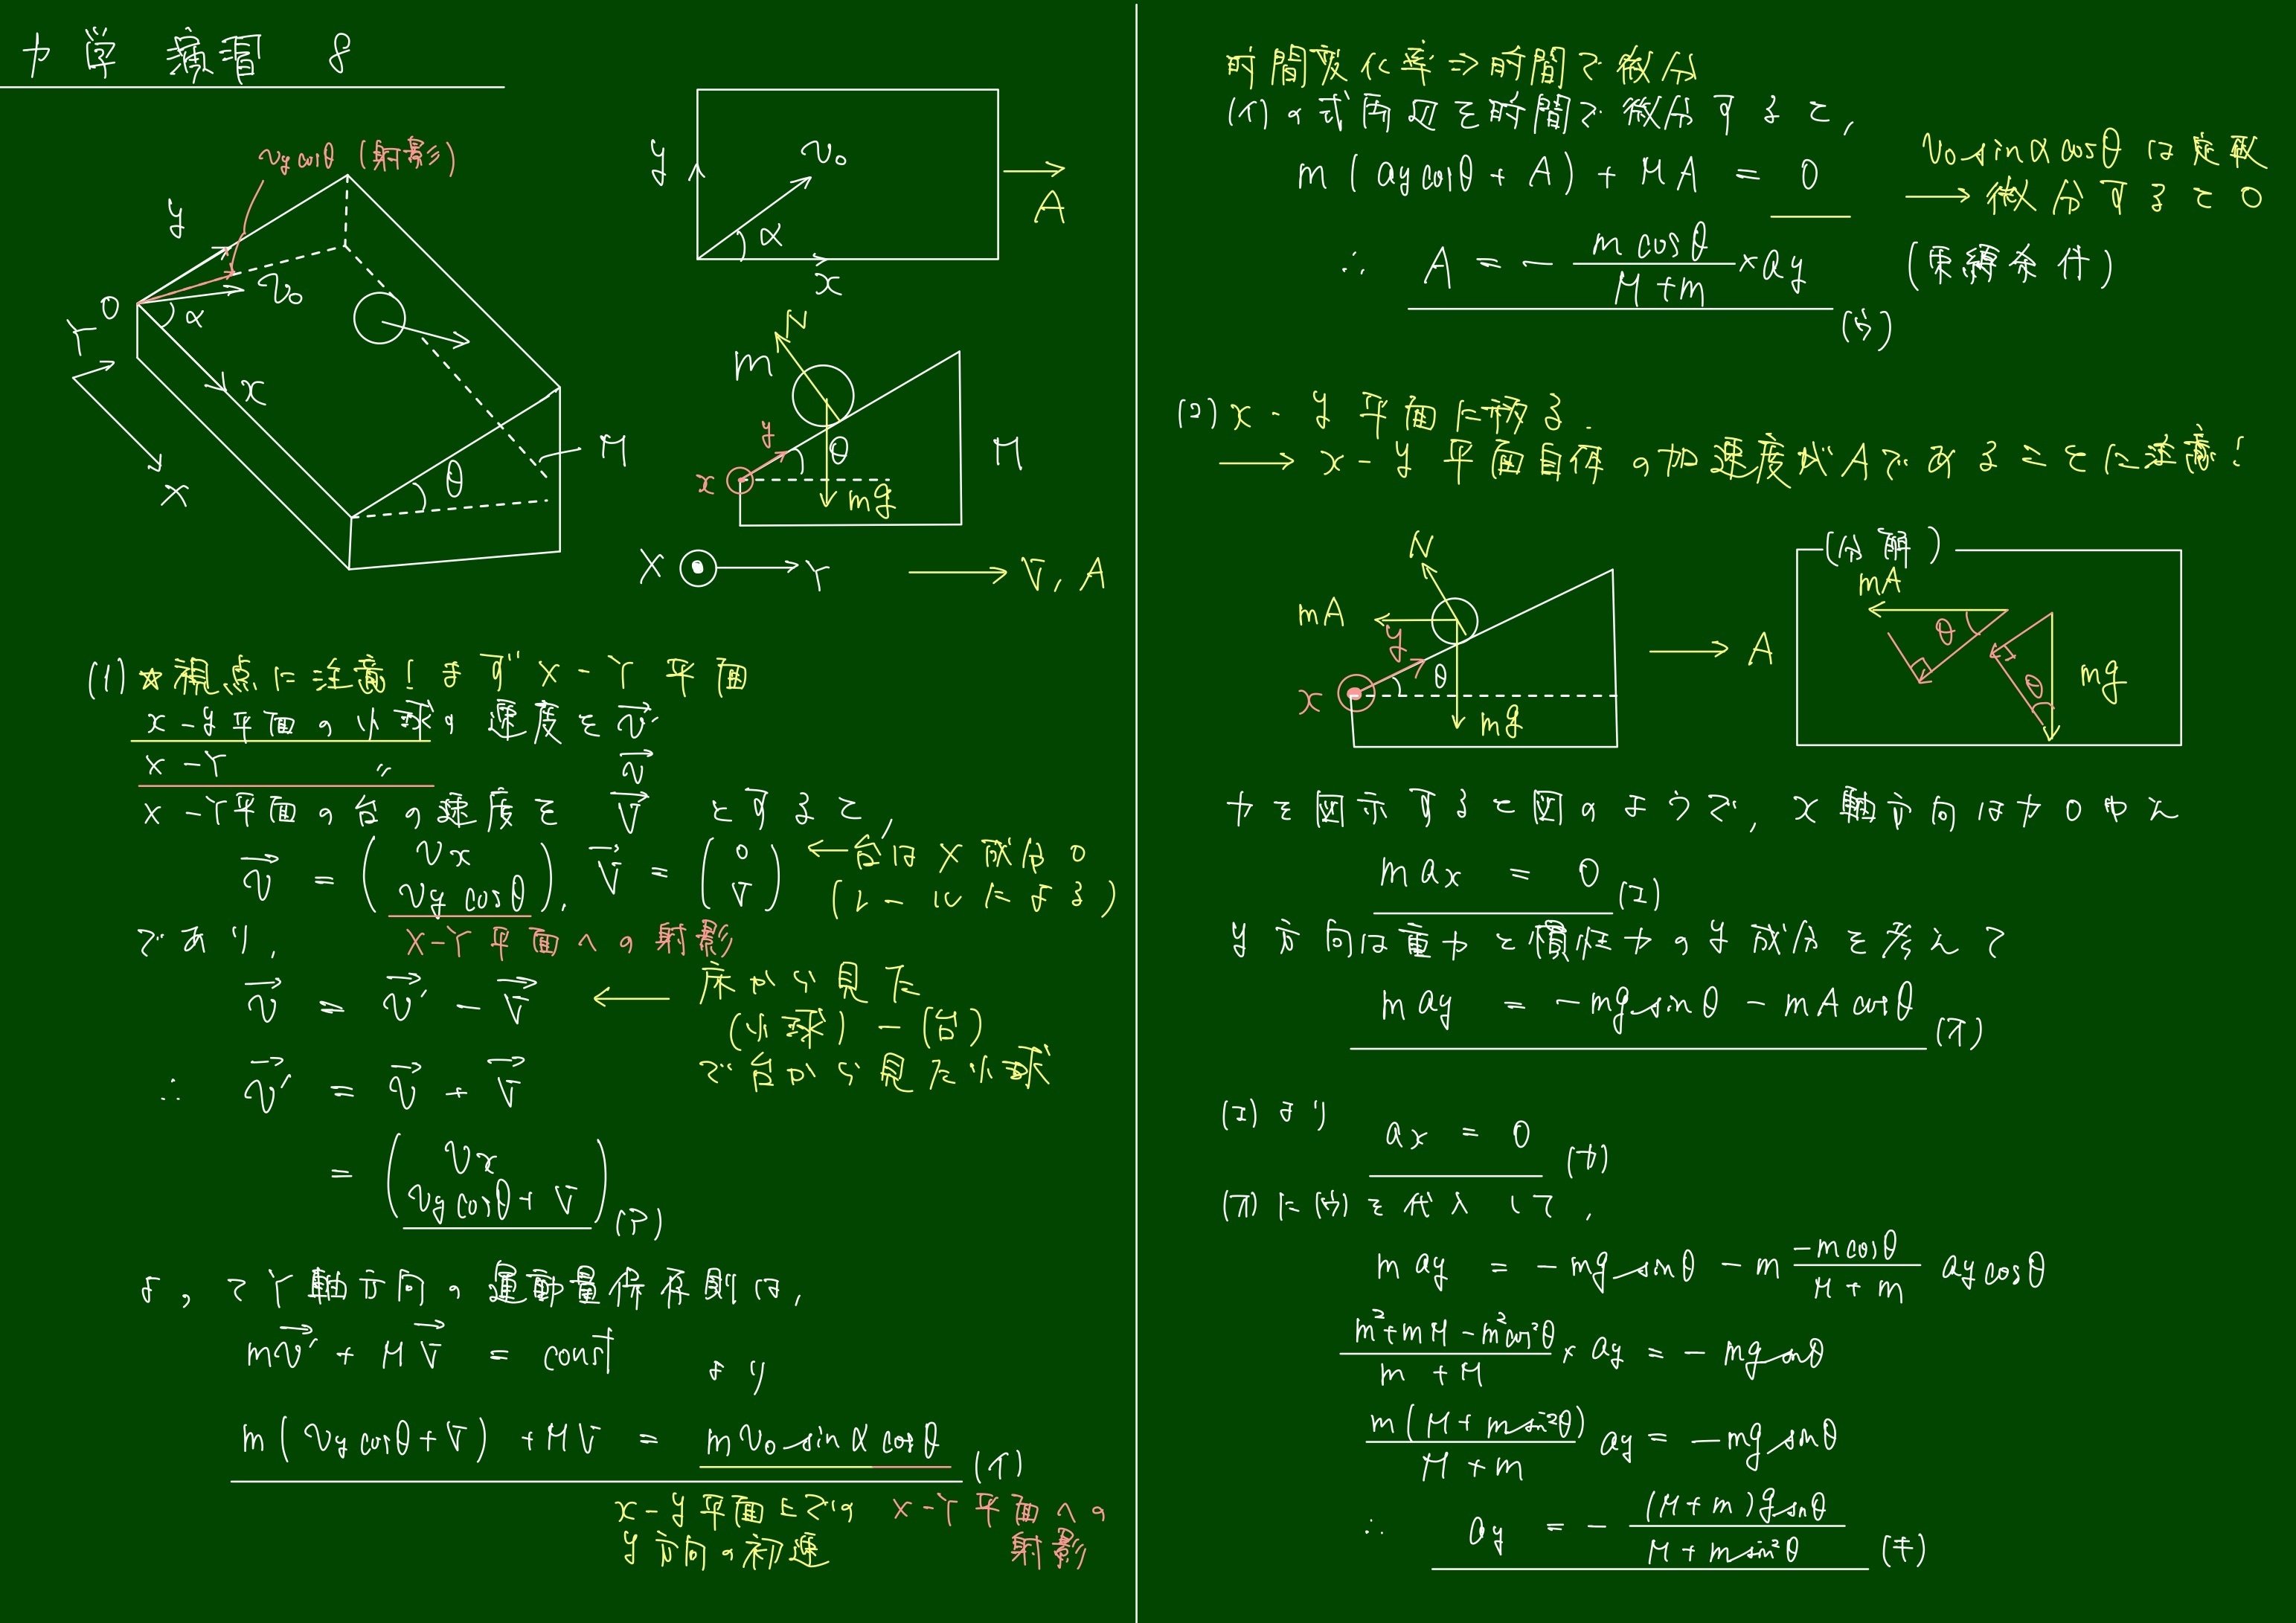 力学演習 8
vy cosθ (射影)
y
O
v₀
α
Y
x
X
θ
M
y
v₀
α
x
A
N
m
y
θ
x
mg
M
X Y
V, A
(1) ☆視点に注意！まず X-Y 平面
x-y平面の小球の速度を v⃗'
X-Y 〃 v⃗
X-Y平面の台の速度を V⃗ とすると,
v⃗ = (vx, vy cosθ), V⃗ = (0, V) ← 台は X 成分 0
(レールによる)
であり, X-Y 平面への射影
v⃗ = v⃗' - V⃗ ← 床から見た
(小球) - (台)
で台から見た小球
∴ v⃗' = v⃗ + V⃗
= (vx, vy cosθ + V) (ア)
よってY軸方向の運動量保存則は,
mv⃗' + MV⃗ = const より
m(vy cosθ + V) + MV = mv₀ sinα cosθ (イ)
x-y平面上での X-Y平面への
y方向の初速 射影
時間変化率⇒時間で微分
(イ)の式両辺を時間で微分すると,
m(ay cosθ + A) + MA = 0
v₀ sinα cosθ は定数
→ 微分すると 0
∴ A = - m cosθ / (M+m) × ay (束縛条件)
(ウ)
(2) x-y 平面に移る.
→ x-y 平面自体の加速度がAであることに注意！
N
mA
y
θ
x
mg
A
(分解)
mA
θ
θ
mg
力を図示すると図のようで, x 軸方向は力 0 ゆえ
max = 0 (エ)
y 方向は重力と慣性力の y 成分を考えて
may = -mg sinθ - mA cosθ (オ)
(エ) より ax = 0 (カ)
(オ)に(ウ)を代入して,
may = -mg sinθ - m (-m cosθ)/(M+m) ay cosθ
(m²+mM-m²cos²θ)/(m+M) × ay = -mg sinθ
m(M+m sin²θ)/(M+m) ay = -mg sinθ
∴ ay = - (M+m)g sinθ / (M+m sin²θ) (キ)